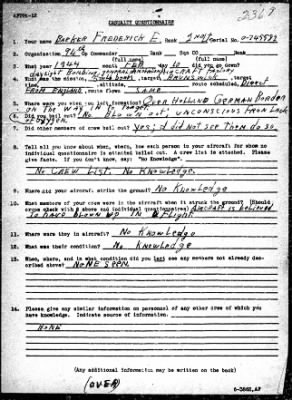 CASUALTY QUESTIONNAIRE
1. Your name BARKER FREDERICK E. Rank 2nd Lt. Serial No.
2. Organization 96th Gp Commander Rank Sqn CO Rank
(full name) (full name)
3. What year 1944 month FEB day 10 did you go down?
4. What was the mission, , target, BRUNSWICK
target time, , altitude, route scheduled, Direct
FROM ENGLAND, route flown SAME
5. Where were you when you left formation? Over HOLLAND GERMAN Border
ON THE WAY IN TO Target.
6. Did you bail out? No Blown out, unconscious From Lack
of oxygen.
7. Did other members of crew bail out? Yes, I did not see them do so.
8. Tell all you know about when, where, how each person in your aircraft for whom no
individual questionnaire is attached bailed out. A crew list is attached. Please
give facts. If you don't know, say: "No Knowledge".
No CREW LIST. No KNOWLEDGE.
9. Where did your aircraft strike the ground? No Knowledge
10. What members of your crew were in the aircraft when it struck the ground? (Should
cross check with 8 above and individual questionnaires) AIRCRAFT is believed
To have Blown up IN Flight.
11. Where were they in aircraft? No Knowledge
12. What was their condition? No Knowledge
13. When, where, and in what condition did you last see any members not already des-
cribed above? NONE SEEN.
14. Please give any similar information on personnel of any other crew of which you
have knowledge. Indicate source of information.
NONE
(Any additional information may be written on the back)
(OVER)
6-3862,AF